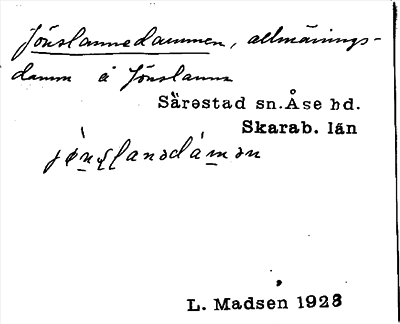 Jönslannedammen, allmännings-
damm å Jönslanna
Särestad sn. Åse hd.
Skarab. län
L. Madsen 1928